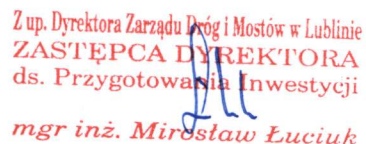 Z up. Dyrektora Zarządu Dróg i Mostów w Lublinie
ZASTĘPCA DYREKTORA
ds. Przygotowania Inwestycji
mgr inż. Mirosław Łuciuk